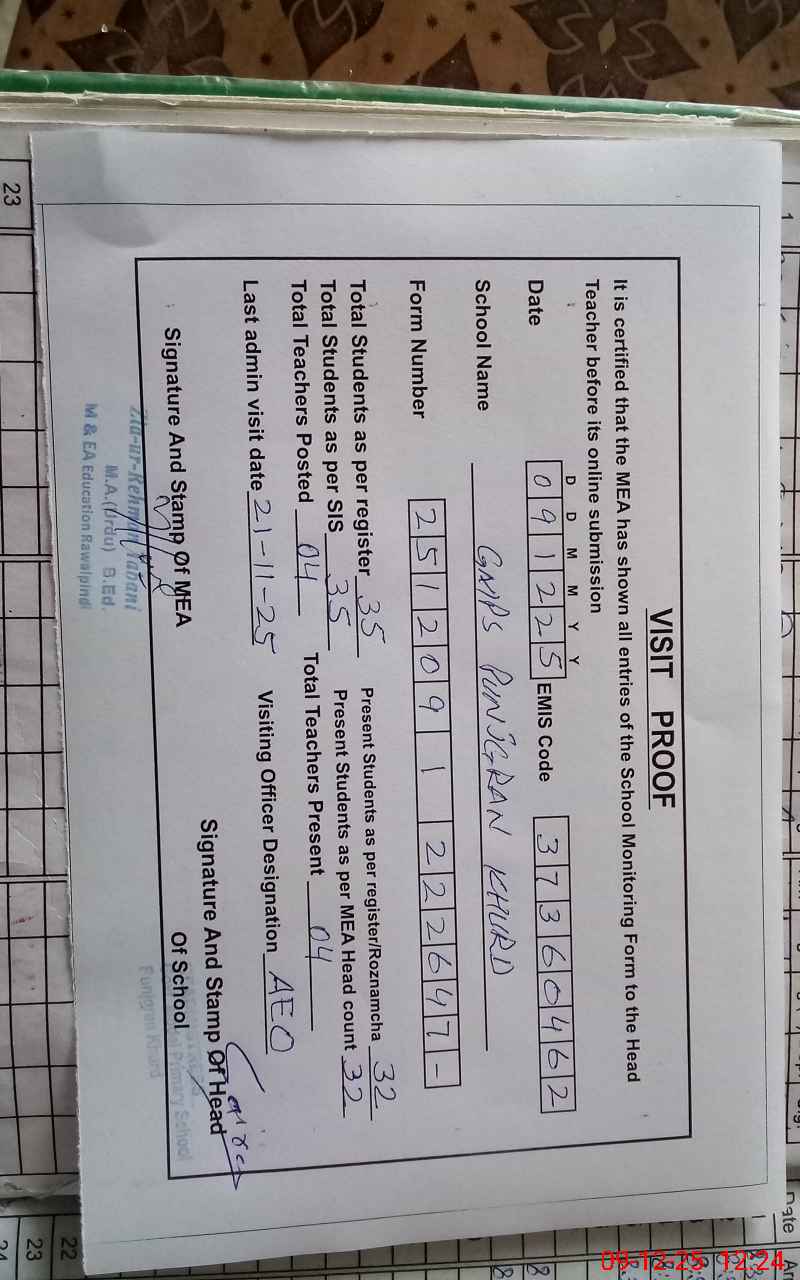 VISIT PROOF
It is certified that the MEA has shown all entries of the School Monitoring Form to the Head
Teacher before its online submission
D D M M Y Y
Date 0 9 1 2 2 5 EMIS Code 3 7 3 6 0 4 6 2
School Name GMPS PUNJGRAN KHURD
Form Number 2 5 1 2 0 9 1 2 2 2 6 4 7 -
Total Students as per register 35 Present Students as per register/Roznamcha 32
Total Students as per SIS 35 Present Students as per MEA Head count 32
Total Teachers Posted 04 Total Teachers Present 04
Last admin visit date 21-11-25 Visiting Officer Designation AEO
Signature And Stamp Of MEA
Signature And Stamp Of Head
Of School
Zia-ur-Rehman
M.A.(Urdu) B.Ed.
M & EA Education Rawalpindi
Primary School
Punjgran Khurd
23
1
Date
22
23
24
09-12-25 12:24